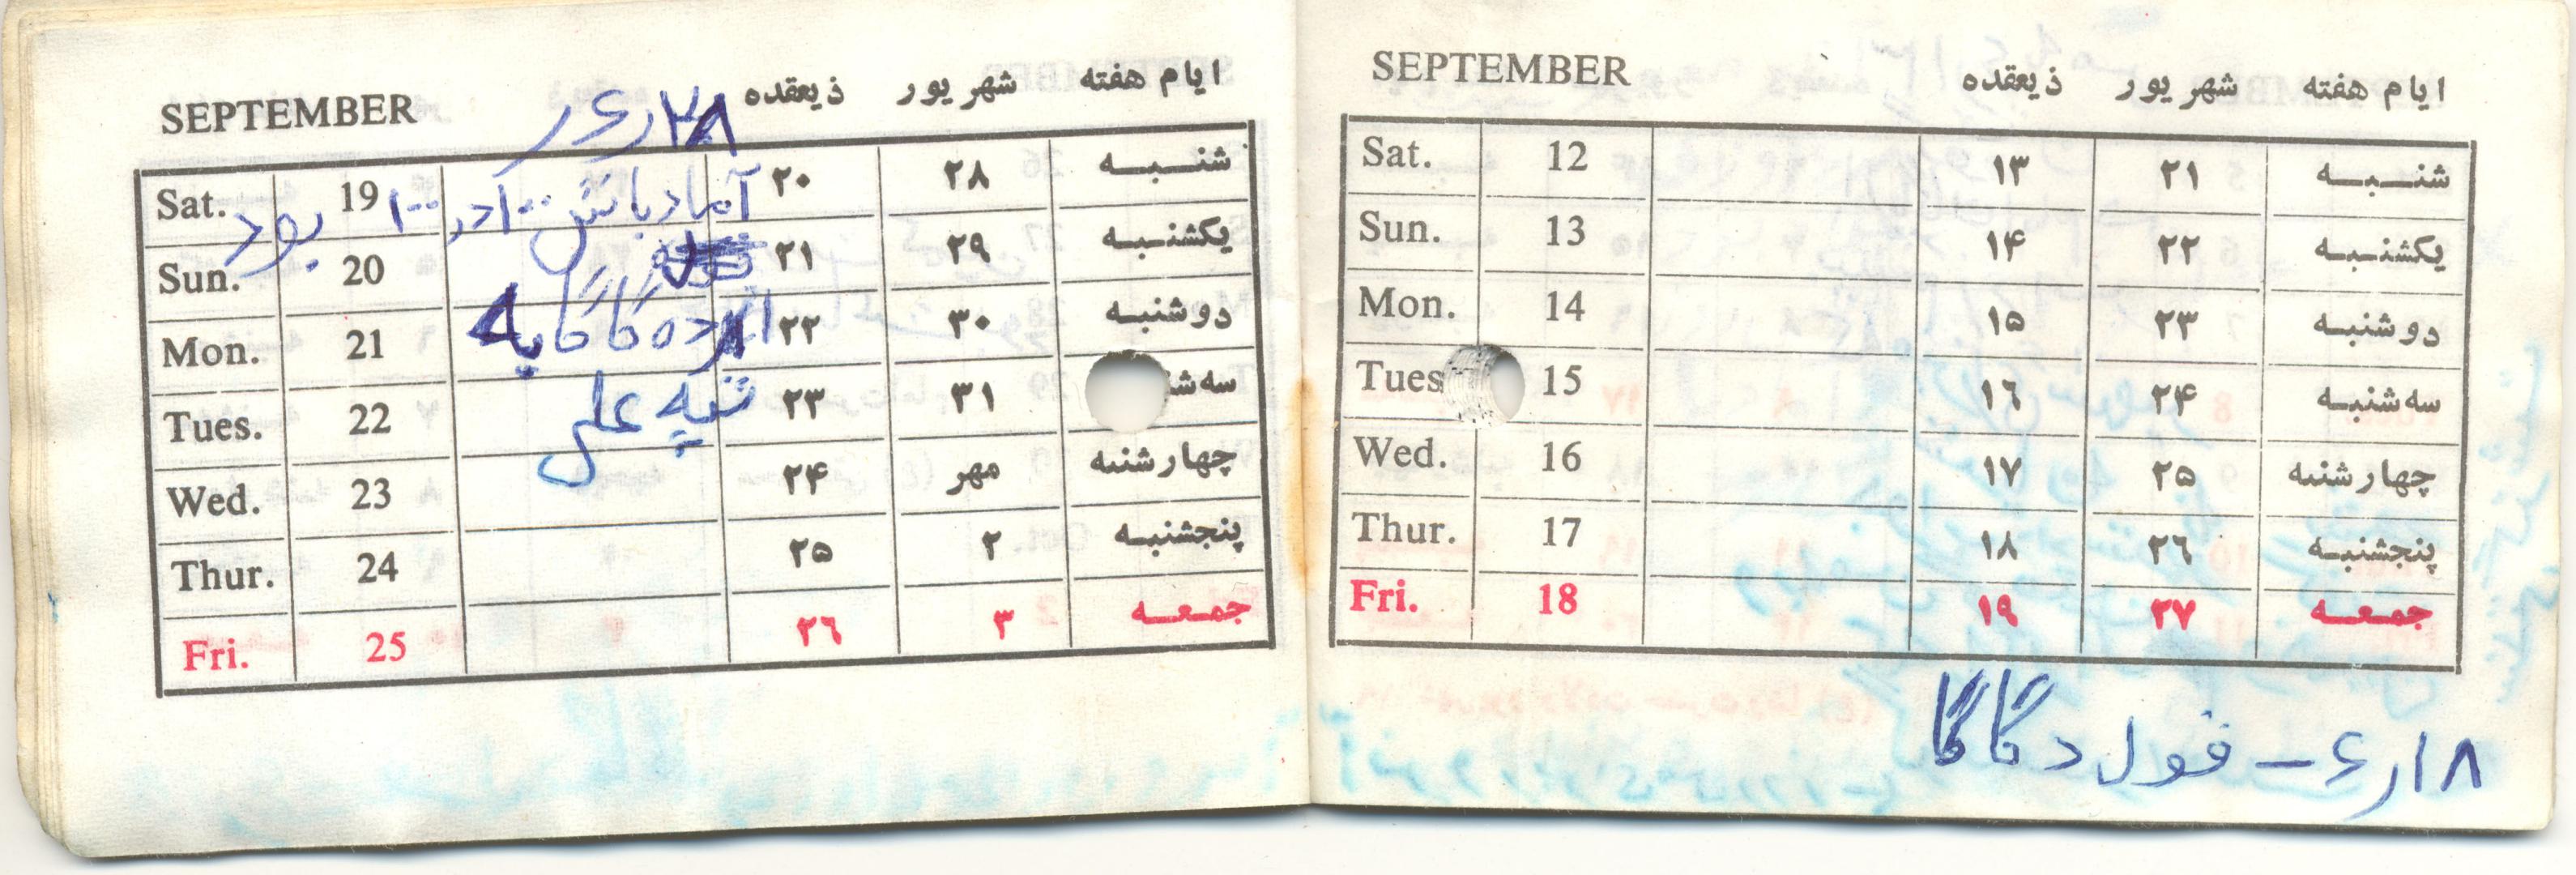 SEPTEMBER ذیعقده شهریور ایام هفته
۲۸ر۶ر
Sat. 19 ۲۰ ۲۸ شنبه
بود
Sun. 20 ۲۱ ۲۹ یکشنبه
Mon. 21 ۲۲ ۳۰ دوشنبه
Tues. 22 ۲۳ ۳۱ سه‌ش
علی
Wed. 23 ۲۴ مهر چهارشنبه
Thur. 24 ۲۵ ۲ پنجشنبه
Fri. 25 ۲۶ ۳ جمعه
SEPTEMBER ذیعقده شهریور ایام هفته
Sat. 12 ۱۳ ۲۱ شنبه
Sun. 13 ۱۴ ۲۲ یکشنبه
Mon. 14 ۱۵ ۲۳ دوشنبه
Tues 15 ۱۶ ۲۴ سه‌شنبه
Wed. 16 ۱۷ ۲۵ چهارشنبه
Thur. 17 ۱۸ ۲۶ پنجشنبه
Fri. 18 ۱۹ ۲۷ جمعه
۱۸ر۶ – قول دگاگا